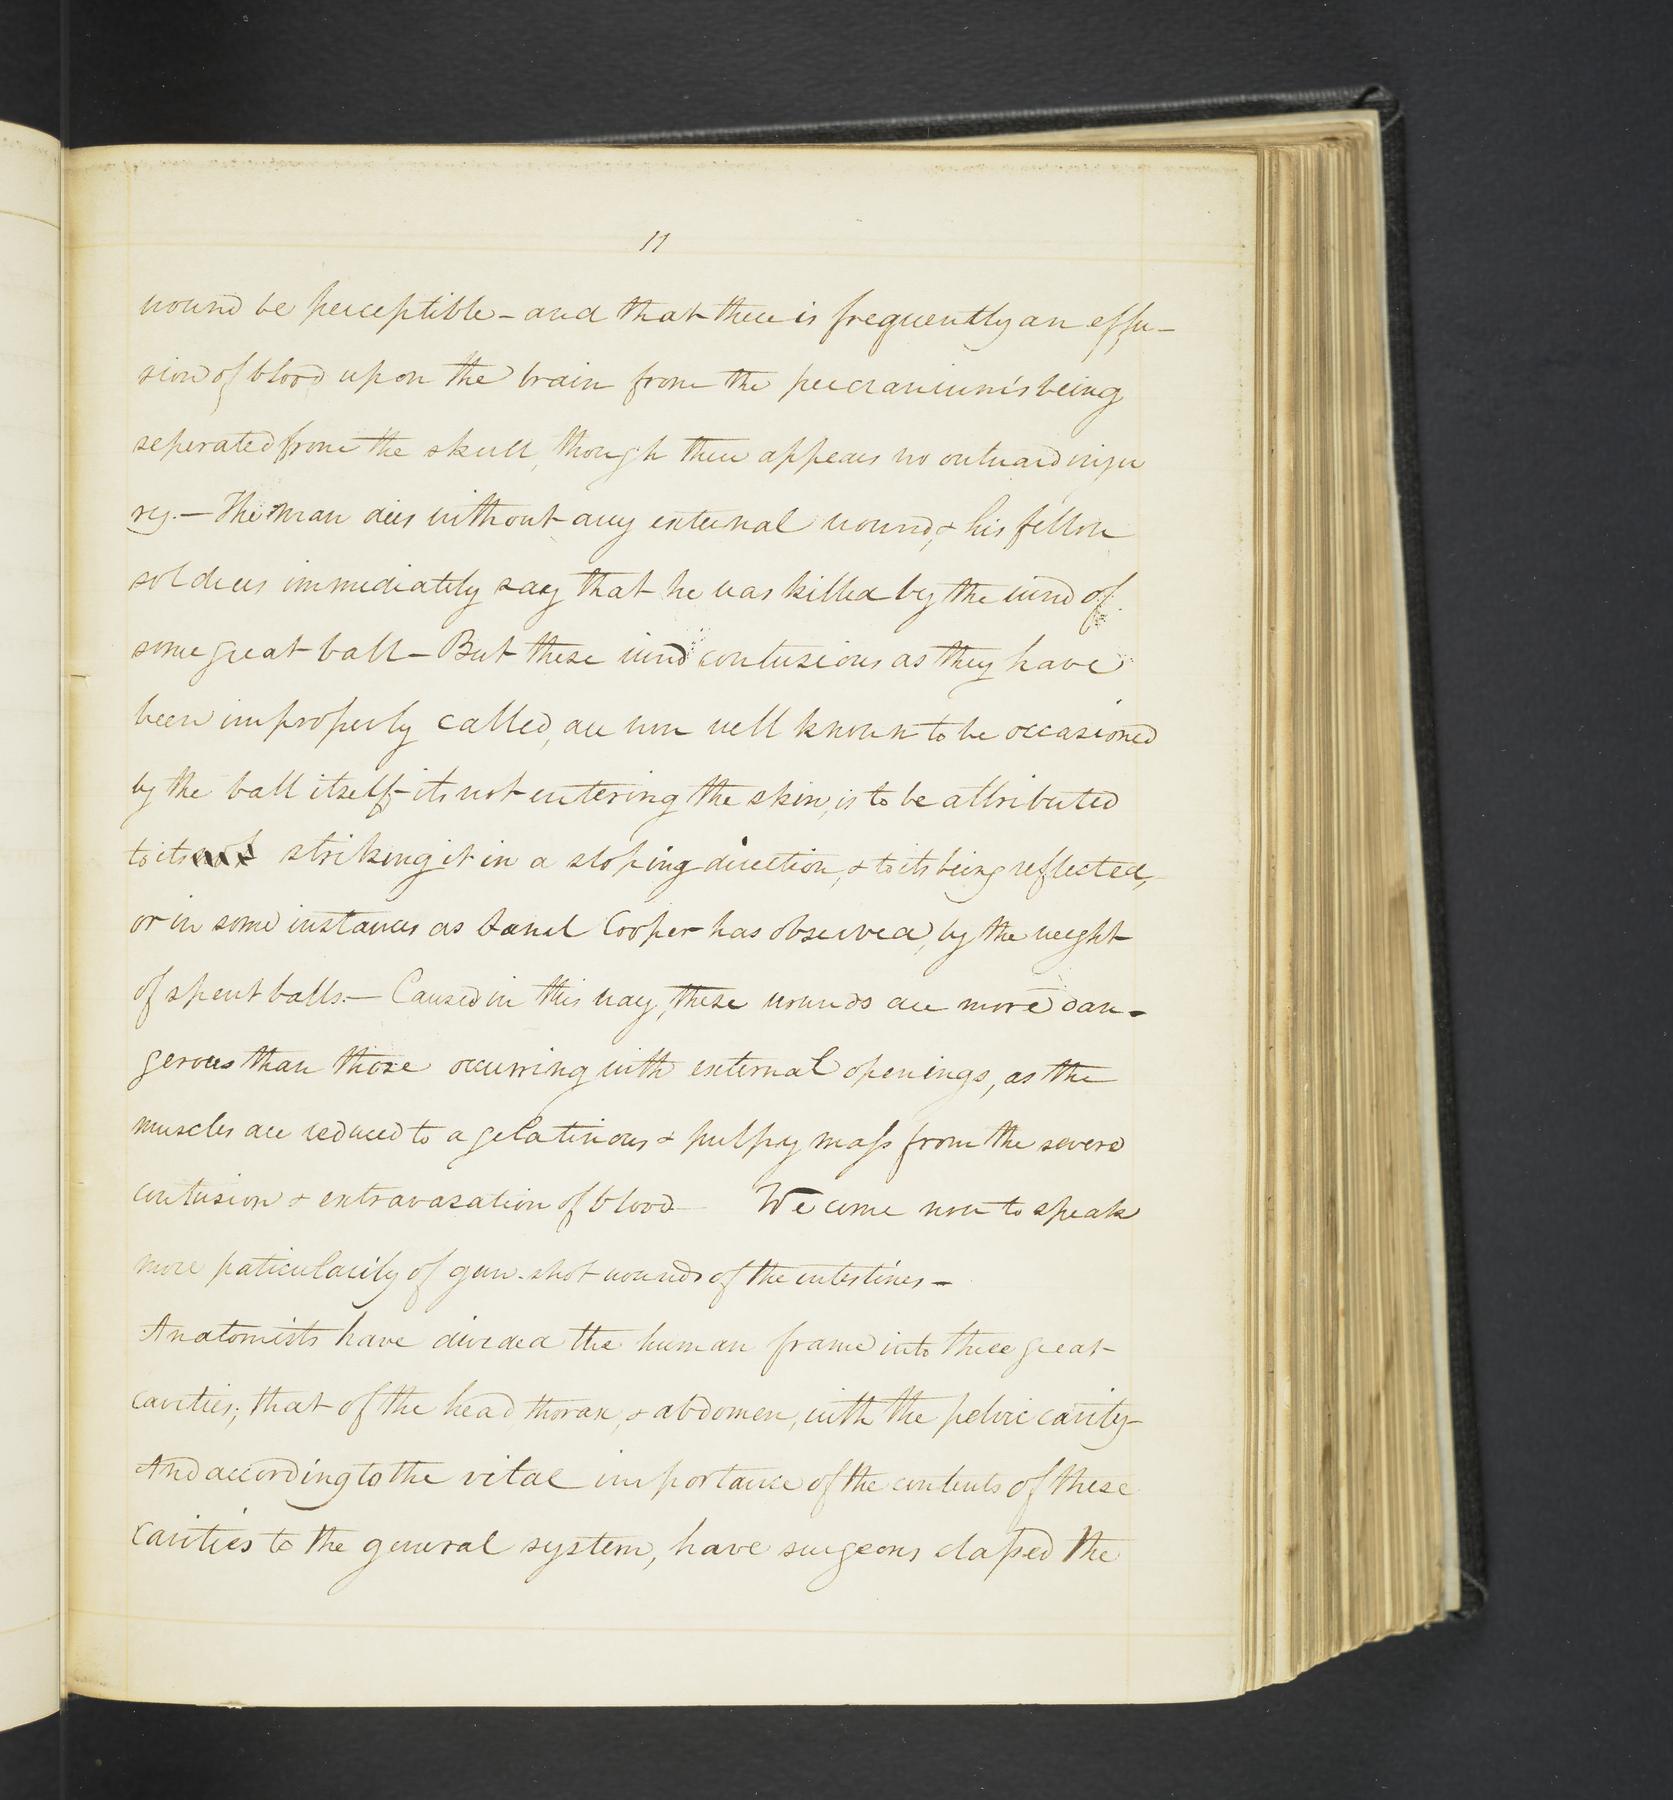 11
wound be perceptible - and that there is frequently an effu-
sion of blood upon the brain from the pericranium's being
seperated from the skull, though there appears no outward inju
ry. - The man dies without any external wound, & his fellow
soldiers immediately say that he was killed by the wind of
some great ball - But these wind contusions as they have
been improperly called, are now well known to be occasioned
by the ball itself - its not entering the skin, is to be attributed
to its striking it in a sloping direction, & to its being reflected,
or in some instances as Cooper has observed, by the weight
of spent balls. - Caused in this way, these wounds are more dan-
gerous than those occurring with external openings, as the
muscles are reduced to a gelatinous & pulpy mass from the severe
contusion & extravasation of blood - We come now to speak
more paticularily of gun-shot wounds of the intestines -
Anatomists have divided the human frame into three great
cavities; that of the head, thorax, & abdomen, with the pelvic cavity -
And according to the vital importance of the contents of these
cavities to the general system, have surgeons classed the